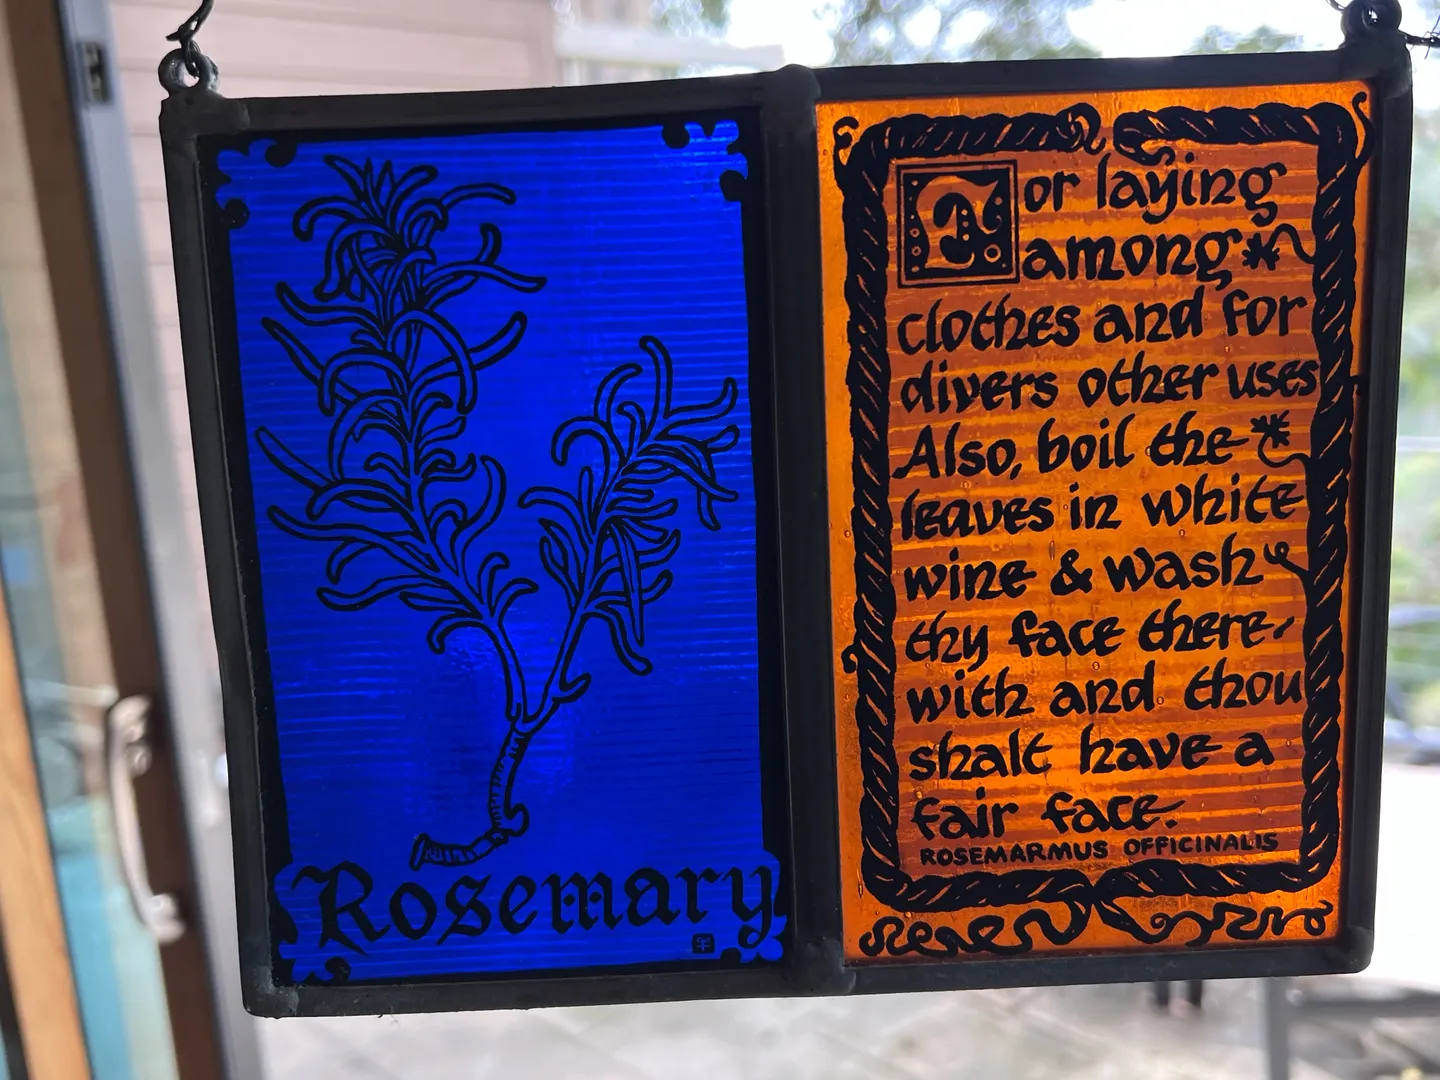 Rosemary
For laying
among
clothes and for
divers other uses
Also, boil the
leaves in white
wine & wash
thy face there-
with and thou
shalt have a
fair face.
ROSEMARMUS OFFICINALIS